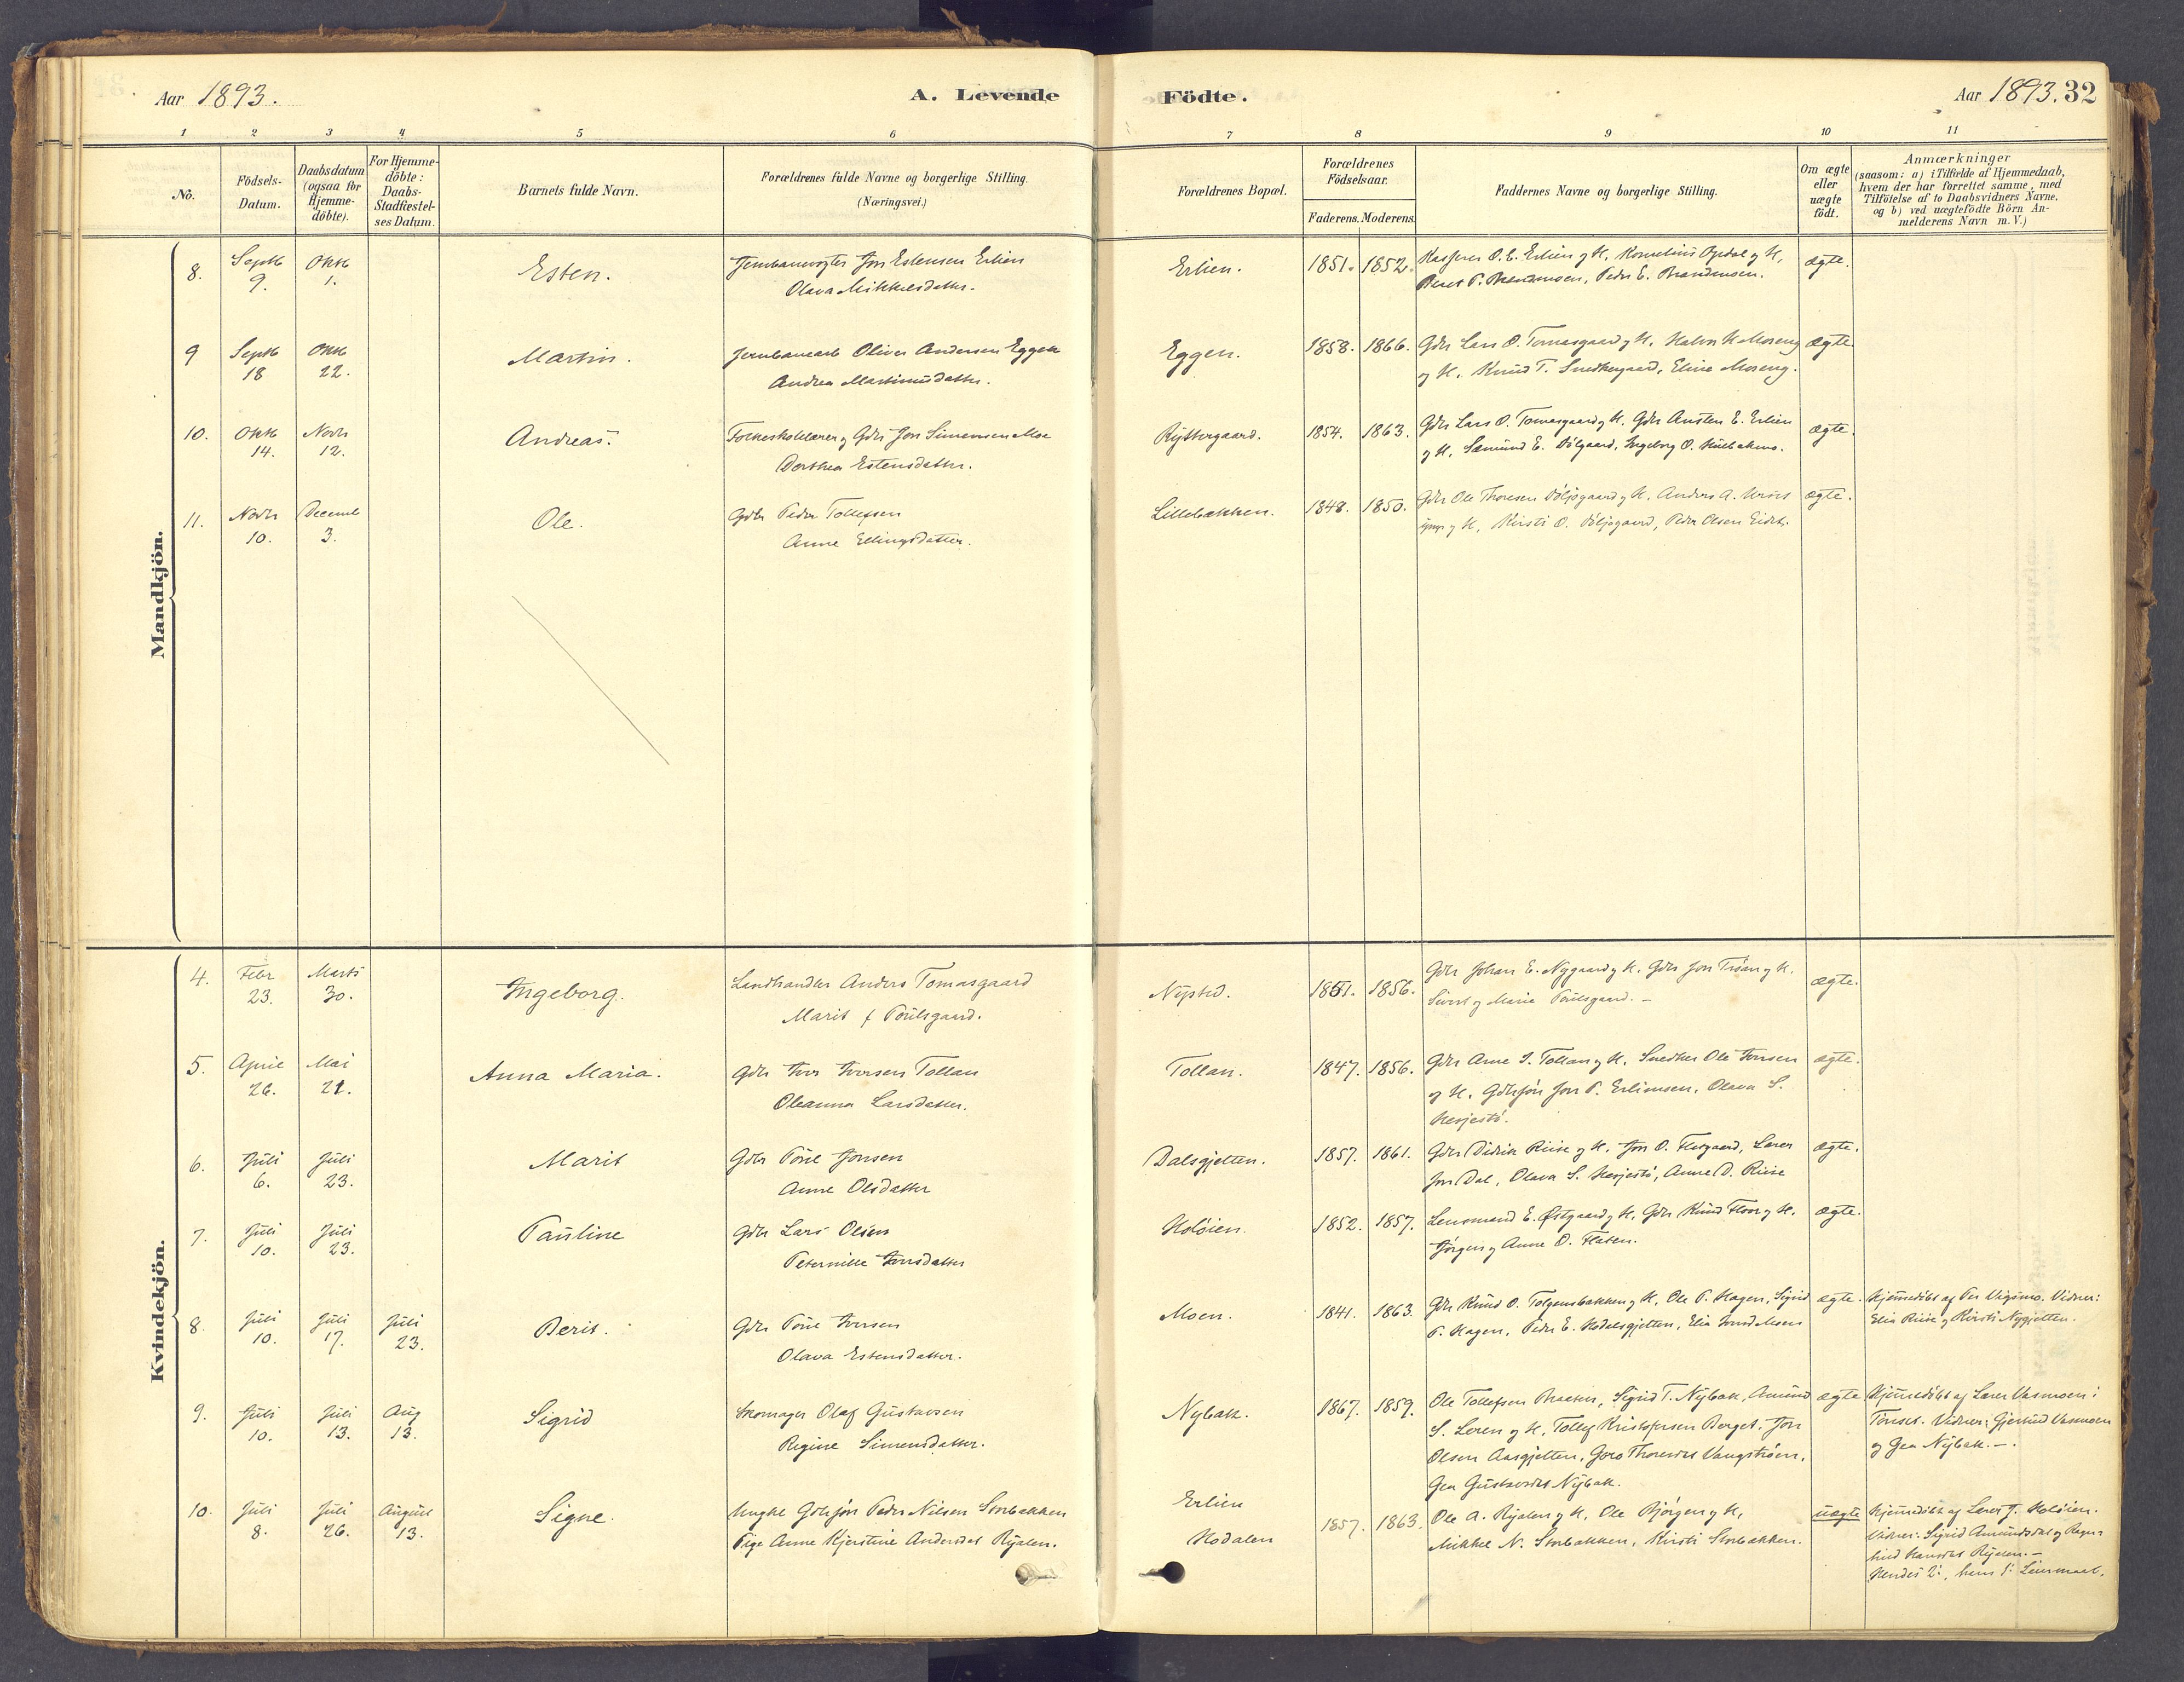 Aar 1893.
A. Levende Födte.
Aar 1893. 32
1 2 3 4 5 6 7 8 9 10 11
No.
Födsels-
Datum.
Daabsdatum
(ogsaa for
Hjemme-
döbte).
For Hjemme-
döbte:
Daabs-
Stadfæstel-
ses Datum.
Barnets fulde Navn.
Forældrenes fulde Navne og borgerlige Stilling.
(Næringsvei.)
Forældrenes Bopæl.
Forældrenes
Födselsaar.
Faderens. Moderens.
Faddernes Navne og borgerlige Stilling.
Om ægte
eller
uægte
födt.
Anmærkninger
(saasom: a) i Tilfælde af Hjemmedaab,
hvem der har forrettet samme, med
Tilföielse af to Daabsvidners Navne,
og b) ved uægtefödte Börn An-
melderens Navn m. V.)
Mandkjön.
8. Septb 9. Oktb 1.
Esten.
Jon Estensen Erlien
Olava Mikkelsdatter.
Erlien.
1851. 1852.
Kasserer O. E. Erlien og H, Kornelius Opdal og H,
Beret P. Brændmoen, Peder E. Brændmoen.
ægte.
9 Septb 18 Oktb 22.
Martin.
Jernbanearb Oliver Andersen Eggen
Andrea Martinusdatter.
Eggen.
1858. 1866.
Gdbr Lars O. Tomasgaard og H. Halvor H Moreng
og H. Knud T. Snedkergaard, Eline Moreng.
ægte.
10. Oktb 14. Novbr 12.
Andreas.
Folkeskolelærer og Gdbr Jon Simensen Moe
Dorthea Estensdatter.
Ryttergaard.
1854. 1863.
Gdbr Lars O. Tomasgaard og H. Gdbr Austen E. Erlien
og H. Sæmund E. Ingeborg O.
ægte.
11. Novbr 10. Decemb 3.
Ole.
Gdbr Peder Tollefsen
Anne Ellingsdatter.
Lillebækken.
1848. 1850.
Gdbr Ole Thoresen og H. Anders A.
og H, Kirsti O. Peder Olsen Eidet.
ægte.
Kvindekjön.
4. Febr 23. Marts 30.
Ingeborg.
Landhandler Anders Tomasgaard
Marit f Poulsgaard.
Nysted.
1851. 1856.
Gdbr Johan E. Nygaard og H. Gdbr Jon Trøan og H.
Sivert og Marie Poulsgaard. –
ægte.
5. April 26. Mai 21.
Anna Maria.
Gdbr Iver Iversen Tollan
Oleanna Larsdatter.
Tollan.
1847. 1856.
Gdbr Arne I. Tollan og H. Snedker Ole Iversen
og H. Gdbrsøn Jon P. Erlimoen, Olava S.
Hesjestø.
ægte.
6. Juli 6. Juli 23.
Marit
Gdbr Poul Jonsen
Anne Olsdatter
Dalsgjetten.
1857. 1861.
Gdbr Didrik Riise og H. Jon O. Lærer
Jon Dal, Olava S. Hesjestø, Anne D. Riise
ægte.
7. Juli 10. Juli 23.
Pauline
Gdbr Lars Olsen
Peternille Iversdatter
Holøien.
1852. 1857.
Lensmand E. Østgaard og H. Gdbr Knud Floor og H.
Jørgen og Anne O. Flaten.
ægte.
8. Juli 10. Juli 17. Juli 23.
Berit.
Gdbr Poul Iversen
Olava Estensdatter.
Moen.
1841. 1863.
Gdbr Knud O. Tolgensbakken og H, Ole P. Hagen, Sigrid
P. Hagen, Peder E. Hodalsgjetten, Elia Moen
ægte.
Hjemmedøbt af Per Vigsmo. Vidner:
Elia Riise og Kirsti Nygjetten.
9. Juli 10. Juli 13. Aug 13.
Sigrid
Skomager Olaf Gustavsen
Regine Simensdatter.
Nybak.
1867. 1859.
Ole Tollefsen Bratten, Sigrid T. Nybak, Amund
S. Loren og H, Tollef Kristofersen Berget. Jon
Olsen Aasgjetten, Goro Thoresdt Vangstrøen.
Gea Gustavsdt Nybak.
ægte
Hjemmedøbt af Lærer Vasmoen i
Tønset. Vidner: Gjertrud Vasmoen
og Gea Nybak. –.
10. Juli 8. Juli 26. August 13.
Signe.
Ungkl Gdbrsøn Peder Nilsen Storbakken
Pige Anne Kjerstine Andersdt Ryalen.
Erlien
Hodalen
1857. 1863.
Ole A. Ryalen og H, Ole Bjørgen og H,
Mikkel N. Storbakken, Kirsti Storbakken.
uægte
Hjemmedøbt af Lærer J. Holøien.
Vidner: Sigrid Amundsdt og Ragn-
hild Hansdt Ryalen. –
Hendes 2', hans 1' Leiermaal.